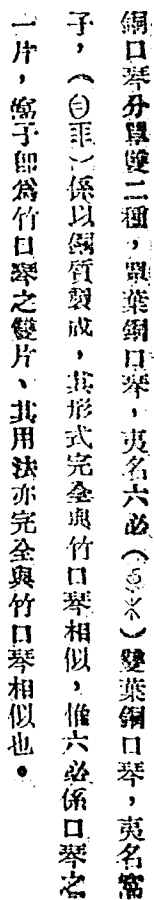 銅口琴分單雙二種，單葉銅口琴，夷名六必（）雙葉銅口琴，夷名窩
子，（）係以銅質製成，其形式完全與竹口琴相似，惟六必係口琴之
一片，窩子即爲竹口琴之雙片、其用法亦完全與竹口琴相似也。